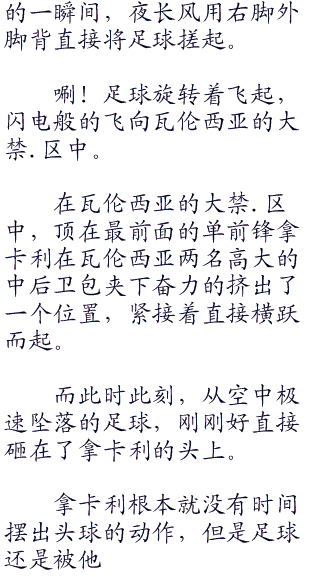 的一瞬间，夜长风用右脚外
脚背直接将足球搓起。
唰！足球旋转着飞起，
闪电般的飞向瓦伦西亚的大
禁.区中。
在瓦伦西亚的大禁.区
中，顶在最前面的单前锋拿
卡利在瓦伦西亚两名高大的
中后卫包夹下奋力的挤出了
一个位置，紧接着直接横跃
而起。
而此时此刻，从空中极
速坠落的足球，刚刚好直接
砸在了拿卡利的头上。
拿卡利根本就没有时间
摆出头球的动作，但是足球
还是被他